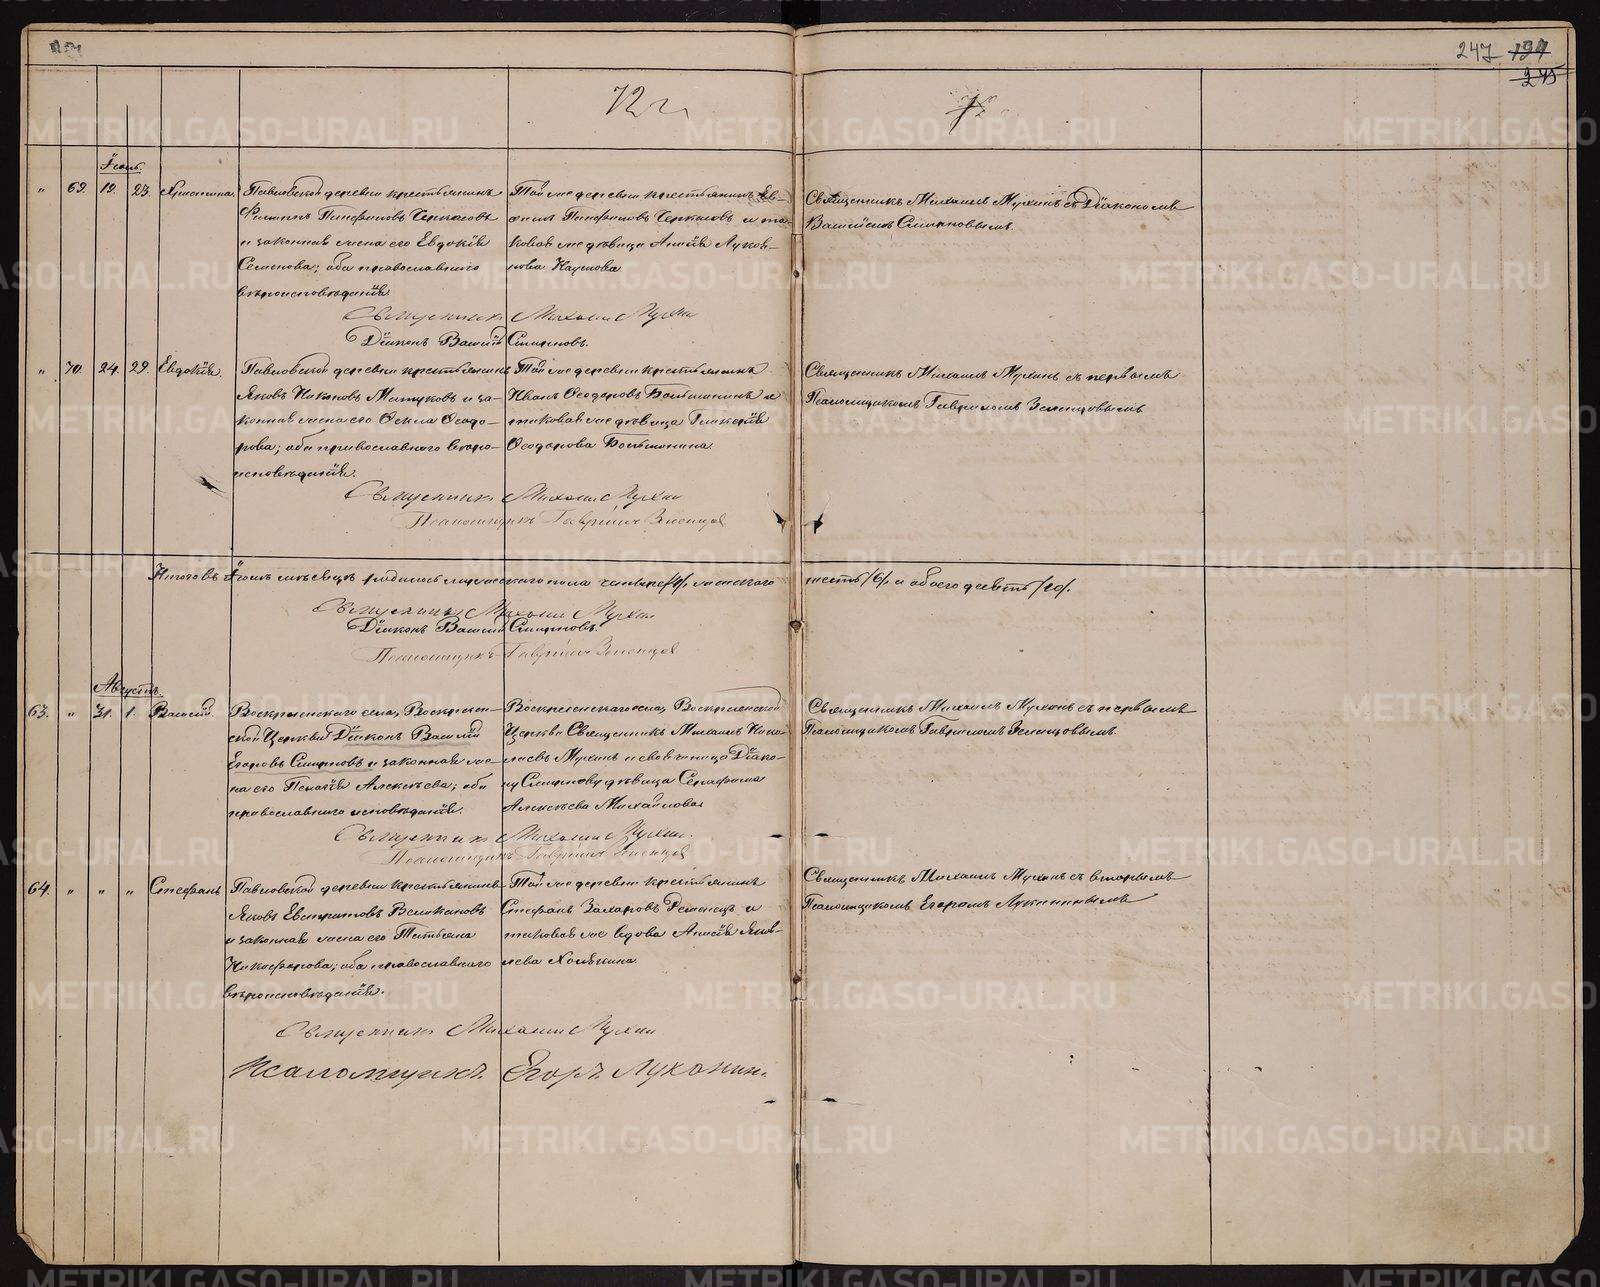 247 194
245
72
Іюль.
" 69. 19. 23. Христина.
Павловской деревни крестьянинъ
Филиппъ Панфиловъ Черкасовъ
и законная жена его Евдокія
Семенова; оба православнаго
вѣроисповѣданія.
Той же деревни крестьянинъ Ев-
Панфиловъ Черкасовъ и та-
ковая же дѣвица Анисія
Наумова
Священникъ Михаилъ Мухинъ съ Діакономъ
Василіемъ Смирновымъ.
Священникъ Михаилъ Мухинъ
Діаконъ Василій Смирновъ.
" 70. 24. 29. Евдокія.
Павловской деревни крестьянинъ
Яковъ Никоновъ и за-
конная жена его Ѳекла Ѳеодо-
рова; оба православнаго вѣро-
исповѣданія.
Той же деревни крестьянинъ
Иванъ Ѳеодоровъ и
таковая же дѣвица Гликерія
Ѳеодорова
Священникъ Михаилъ Мухинъ съ первымъ
Псаломщикомъ Гавріиломъ Зеленцовымъ
Священникъ Михаилъ Мухинъ
Псаломщикъ Гавріилъ Зеленцов
Итого въ Іюлѣ мѣсяцѣ родилось мужескаго пола четыре /4/, женскаго шесть /6/, и обоего десять /10/.
Священникъ Михаилъ Мухин
Діаконъ Василій Смирновъ.
Псаломщикъ Гавріилъ Зеленцов
Августъ.
63. " 31. 1. Василій.
Воскресенскаго села, Воскресен-
ской Церкви Діаконъ Василій
Егоровъ Смирновъ и законная же-
на его Пелагія Алексѣева; оба
православнаго исповѣданія.
Воскресенскаго села, Воскресенской
Церкви Священникъ Михаилъ
Мухинъ и своячиница Діако-
ну Смирнову дѣвица Серафима
Алексѣева Михайлова
Священникъ Михаилъ Мухинъ съ первымъ
Псаломщикомъ Гавріиломъ Зеленцовымъ.
Священникъ Михаилъ Мухин.
Псаломщикъ Гавріилъ Зеленцов
64. " " " Стефанъ
Павловской деревни крестьянинъ
Яковъ Евстратовъ Великановъ
и законная жена его Татьяна
Никифорова; оба православнаго
вѣроисповѣданія.
Той же деревни крестьянинъ
Стефанъ Захаровъ и
таковая же вдова Анисія Яков-
лева Холкина.
Священникъ Михаилъ Мухинъ съ вторымъ
Псаломщикомъ Егоромъ Луканинымъ
Священникъ Михаилъ Мухин
Псаломщикъ. Егоръ Луканин.
METRIKI.GASO-URAL.RU